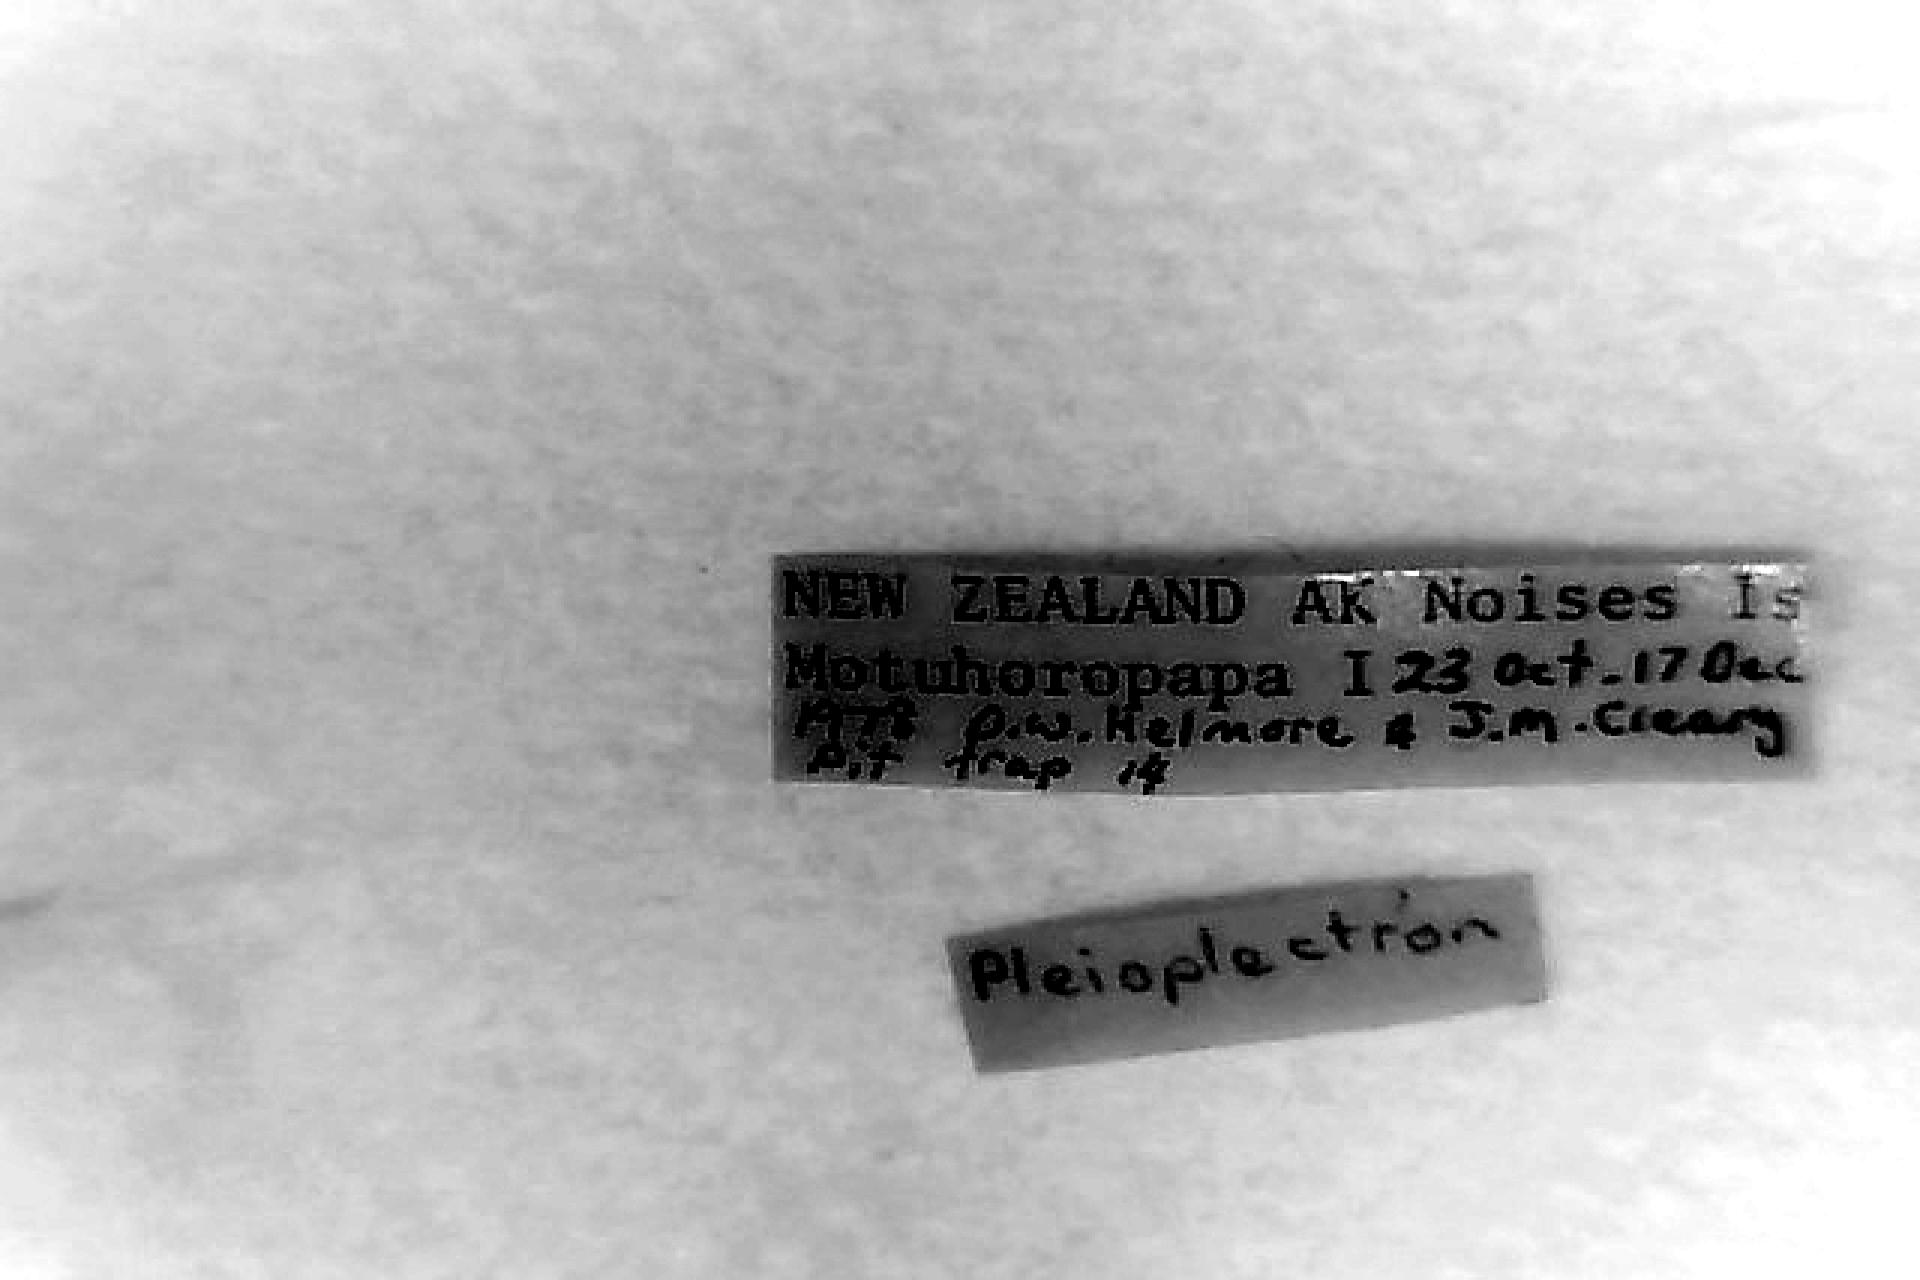 NEW ZEALAND AK Noises Is
Motuhoropapa I 23 Oct.-17 Dec
1978 D.W. Helmore & J.M. Cleary
Pit trap 14
Pleioplectron